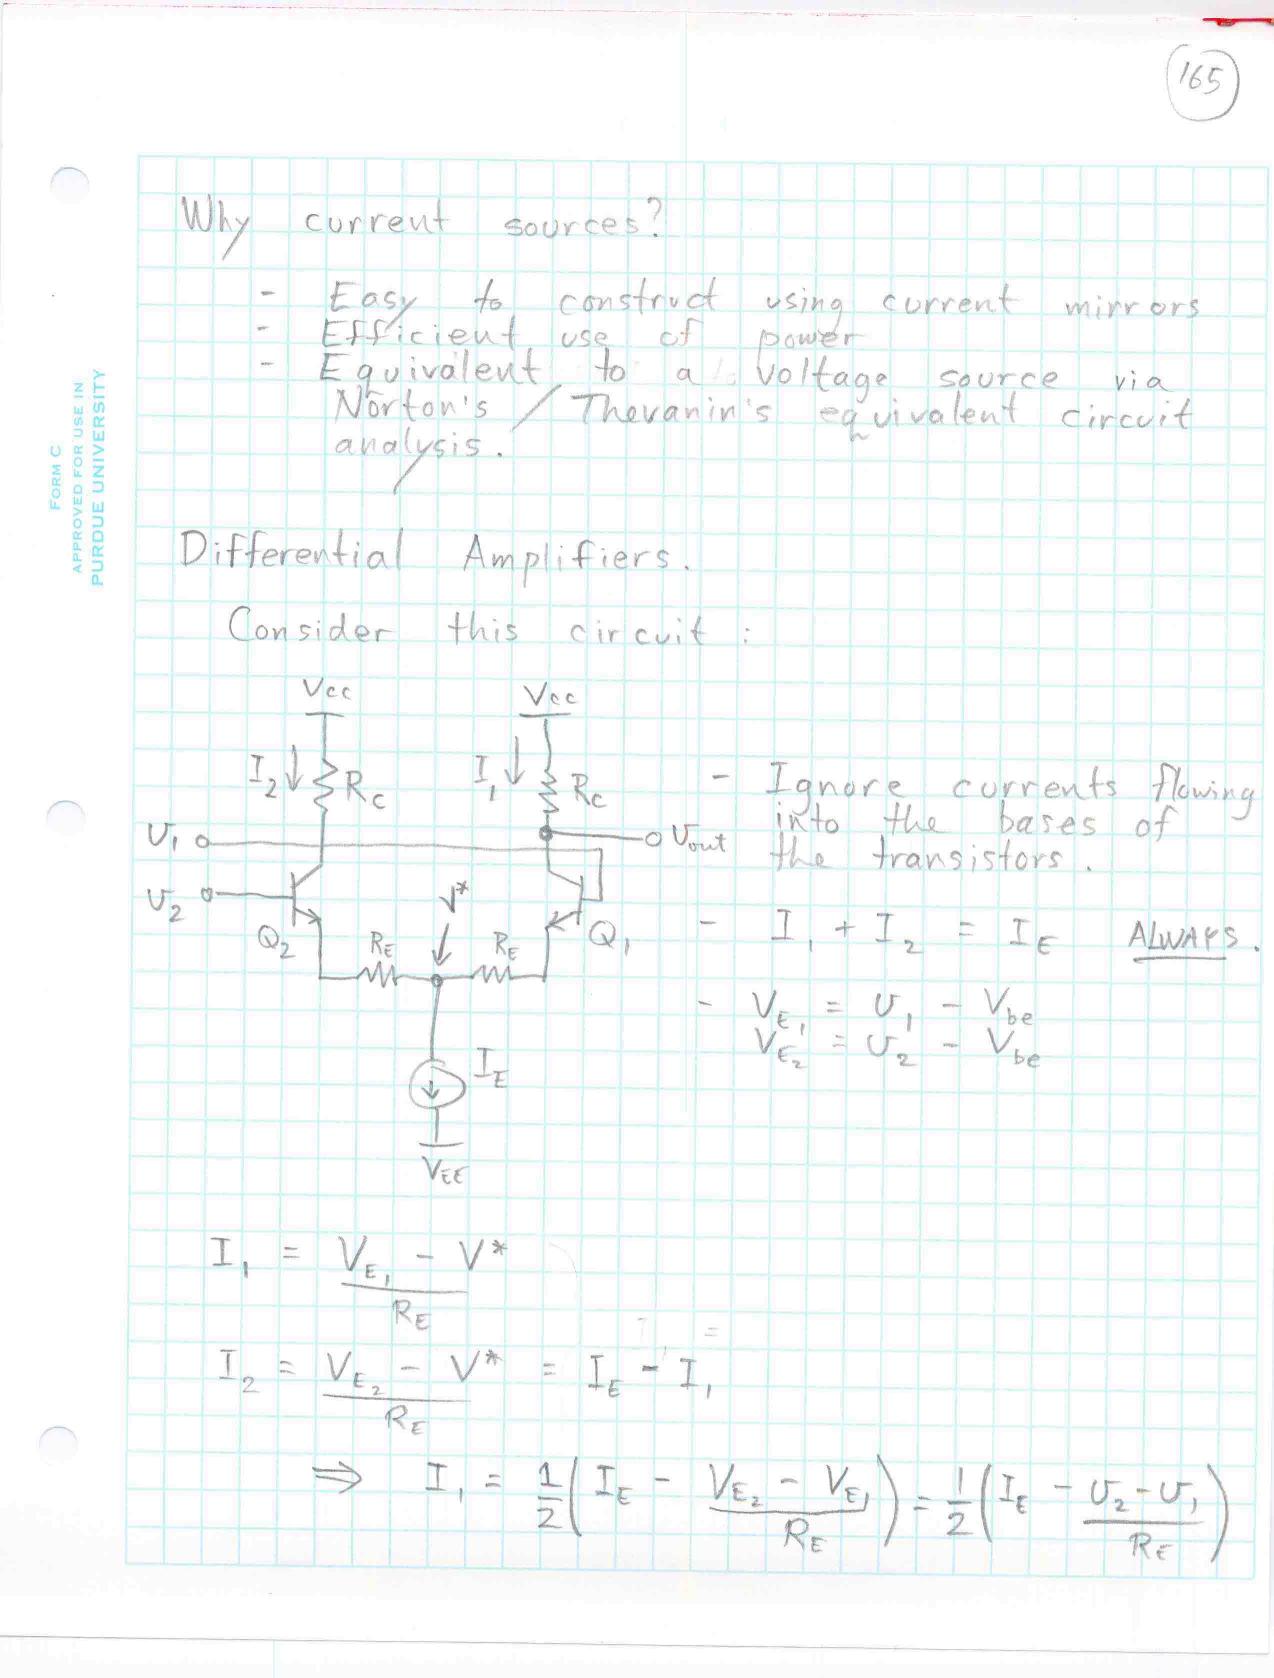 165
FORM C
APPROVED FOR USE IN
PURDUE UNIVERSITY
Why current sources?
- Easy to construct using current mirrors
- Efficient use of power
- Equivalent to a voltage source via
Norton's / Thevanin's equivalent circuit
analysis.
Differential Amplifiers.
Consider this circuit :
Vcc Vcc
I₂ Rc I₁ Rc
- Ignore currents flowing
into the bases of
the transistors.
υ₁ υout
υ₂ V*
Q₂ RE RE Q₁
- I₁ + I₂ = IE ALWAYS.
- VE₁ = υ₁ - Vbe
VE₂ = υ₂ - Vbe
IE
VEE
I₁ = (VE₁ - V*) / RE
I₂ = (VE₂ - V*) / RE = IE - I₁
⇒ I₁ = 1/2 (IE - (VE₂ - VE₁) / RE) = 1/2 (IE - (υ₂ - υ₁) / RE)